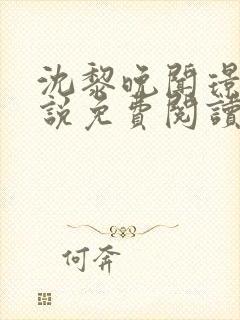 沈黎晚聞璟
說免費閱讀
何奔